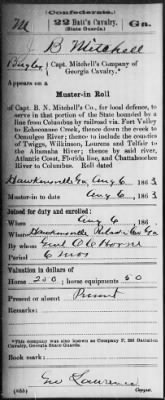 (Confederate.)
M 22 Batt'n Cavalry. Ga.
(State Guards.)
J B Mitchell
Bugler, Capt. Mitchell's Company of
Georgia Cavalry.*
Appears on a
Muster-in Roll
of Capt. B. N. Mitchell's Co., for local defence, to
serve in that portion of the State bounded by a
line from Columbus by railroad via Fort Valley
to Echeconnee Creek, thence down the creek to
Ocmulgee River; thence to include the counties
of Twiggs, Wilkinson, Laurens and Telfair to
the Altamaha River; thence by said river,
Atlantic Coast, Florida line, and Chattahoochee
River to Columbus. Roll dated
Hawkinsville Ga Aug 6, 1863
Muster-in to date Aug 6, 1863
Joined for duty and enrolled:
When Aug 4, 1863
Where Hawkinsville Pulaski Co Ga
By whom O C Horne
Period 6 mos
Valuation in dollars of
Horse 200; horse equipments 50
Present or absent Present
Remarks:
*This company was also known as Company F, 22d Battalion
Cavalry, Georgia State Guards.
Book mark:
Geo Lawrence
Copyist.